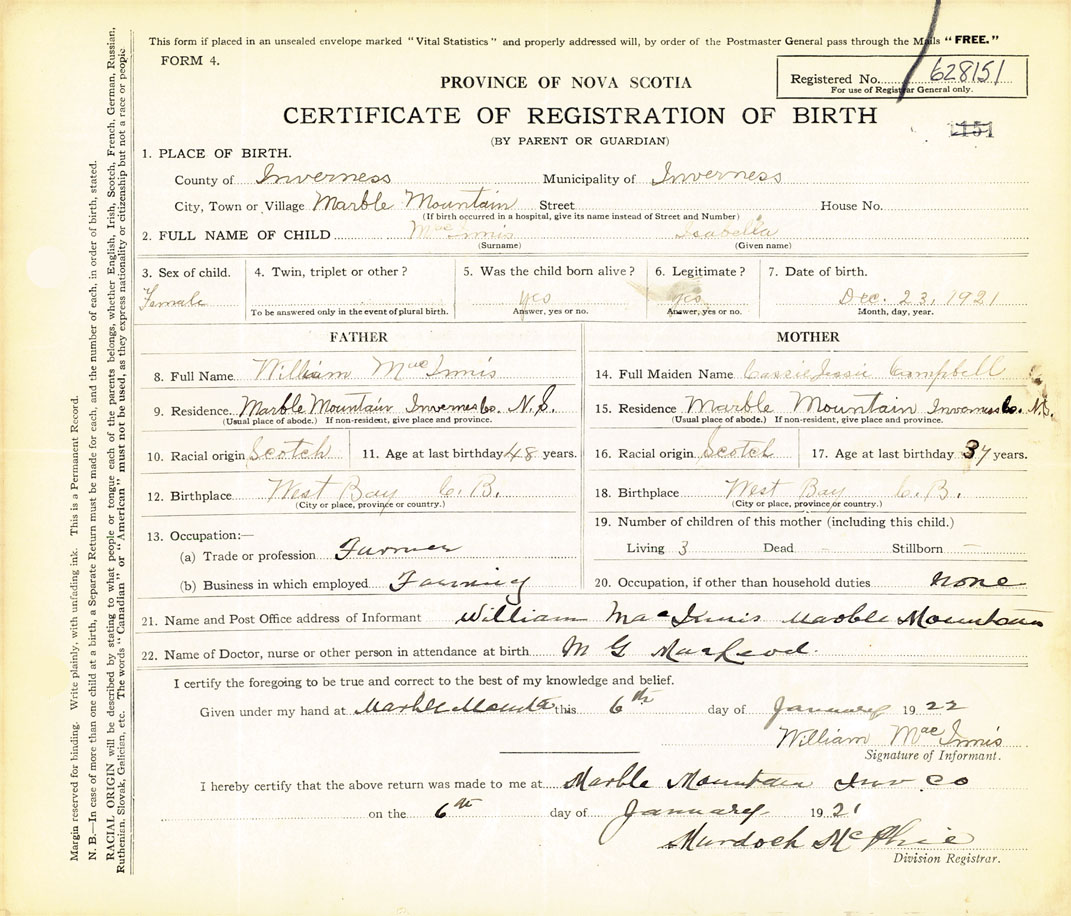 This form if placed in an unsealed envelope marked "Vital Statistics" and properly addressed will, by order of the Postmaster General pass through the Mails "FREE."
FORM 4.
PROVINCE OF NOVA SCOTIA
Registered No. 628151
For use of Registrar General only.
CERTIFICATE OF REGISTRATION OF BIRTH
(BY PARENT OR GUARDIAN)
1. PLACE OF BIRTH.
County of Inverness Municipality of Inverness
City, Town or Village Marble Mountain Street House No.
(If birth occurred in a hospital, give its name instead of Street and Number)
2. FULL NAME OF CHILD MacInnis Isabella
(Surname) (Given name)
3. Sex of child. 4. Twin, triplet or other? 5. Was the child born alive? 6. Legitimate? 7. Date of birth.
Female yes yes Dec. 23, 1921
To be answered only in the event of plural birth. Answer, yes or no. Answer, yes or no. Month, day, year.
FATHER
8. Full Name William MacInnis
9. Residence Marble Mountain Inverness Co. N.S.
(Usual place of abode.) If non-resident, give place and province.
10. Racial origin Scotch 11. Age at last birthday 48 years.
12. Birthplace West Bay C.B.
(City or place, province or country.)
13. Occupation:—
(a) Trade or profession Farmer
(b) Business in which employed Farming
MOTHER
14. Full Maiden Name Cassie Jessie Campbell
15. Residence Marble Mountain Inverness Co. N.S.
(Usual place of abode.) If non-resident, give place and province.
16. Racial origin Scotch 17. Age at last birthday 37 years.
18. Birthplace West Bay C.B.
(City or place, province or country.)
19. Number of children of this mother (including this child.)
Living 3 Dead – Stillborn –
20. Occupation, if other than household duties none
21. Name and Post Office address of Informant William MacInnis Marble Mountain
22. Name of Doctor, nurse or other person in attendance at birth M G MacLeod.
I certify the foregoing to be true and correct to the best of my knowledge and belief.
Given under my hand at Marble Mountain this 6th day of January 1922
William MacInnis
Signature of Informant.
I hereby certify that the above return was made to me at Marble Mountain Inv Co
on the 6th day of January 1921
Murdoch McPhie
Division Registrar.
Margin reserved for binding. Write plainly, with unfading ink. This is a Permanent Record.
N. B.—In case of more than one child at a birth, a Separate Return must be made for each, and the number of each, in order of birth, stated.
RACIAL ORIGIN will be described by stating to what people or tongue each of the parents belongs, whether English, Irish, Scotch, French, German, Russian,
Ruthenian, Slovak, Galician, etc. The words "Canadian" or "American" must not be used, as they express nationality or citizenship but not a race or people